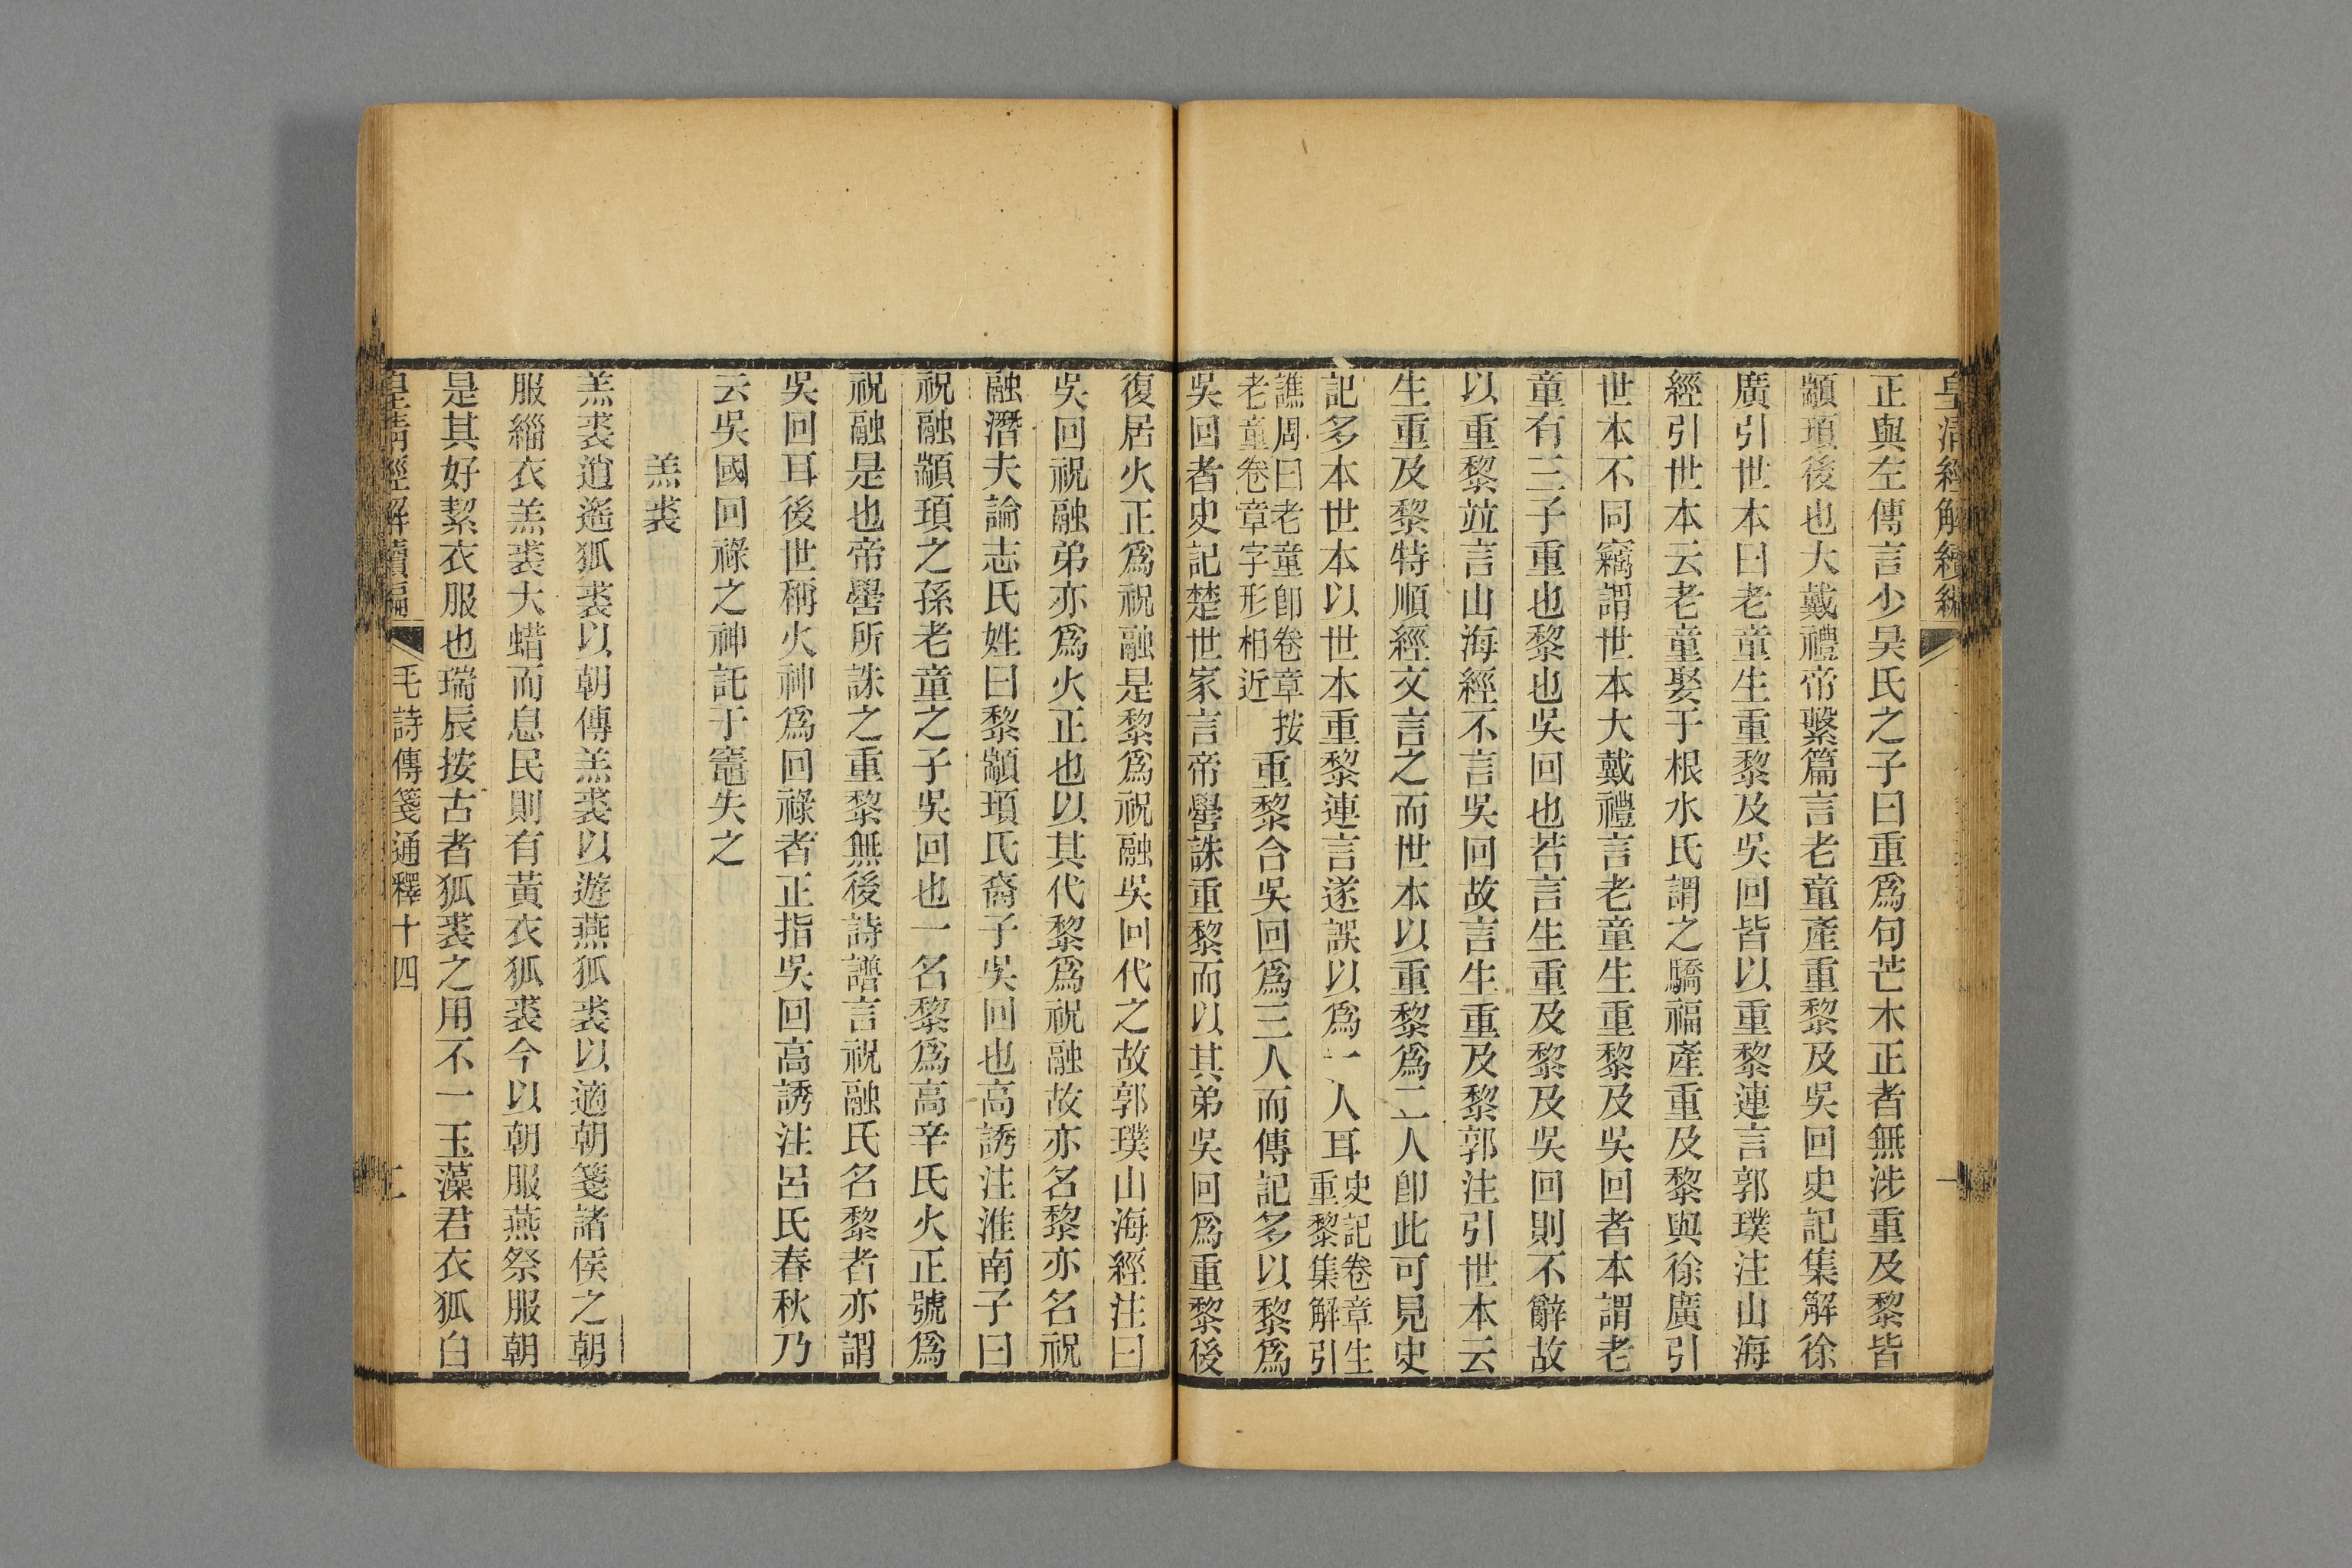 皇清經解續編
一
正與左傳言少吴氏之子曰重爲句芒木正者無涉重及黎皆
顓頊後也大戴禮帝繫篇言老童產重黎及吳回史記集解徐
廣引世本曰老童生重黎及吳回皆以重黎連言郭璞注山海
經引世本云老童娶于根水氏謂之驕福產重及黎與徐廣引
世本不同竊謂世本大戴禮言老童生重黎及吳回者本謂老
童有三子重也黎也吳回也若言生重及黎及吳回則不辭故
以重黎竝言山海經不言吳回故言生重及黎郭注引世本云
生重及黎特順經文言之而世本以重黎爲二人卽此可見史
記多本世本以世本重黎連言遂誤以爲一人耳史記卷章生
重黎集解引
譙周曰老童卽卷章按
老童卷章字形相近
重黎合吳回爲三人而傳記多以黎爲
吳回者史記楚世家言帝嚳誅重黎而以其弟吳回爲重黎後
復居火正爲祝融是黎爲祝融吳回代之故郭璞山海經注曰
吳回祝融弟亦爲火正也以其代黎爲祝融故亦名黎亦名祝
融潛夫論志氏姓曰黎顓頊氏裔子吳回也高誘注淮南子曰
祝融顓頊之孫老童之子吳回也一名黎爲高辛氏火正號爲
祝融是也帝嚳所誅之重黎無後詩譜言祝融氏名黎者亦謂
吳回耳後世稱火神爲回祿者正指吳回高誘注呂氏春秋乃
云吳國回祿之神託于竈失之
羔裘
羔裘逍遙狐裘以朝傳羔裘以遊燕狐裘以適朝箋諸侯之朝
服緇衣羔裘大蜡而息民則有黃衣狐裘今以朝服燕祭服朝
是其好絜衣服也瑞辰按古者狐裘之用不一玉藻君衣狐白
皇清經解續編
毛詩傳箋通釋十四